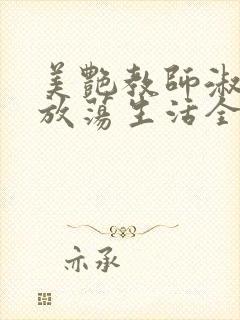 美艷教師淑
放蕩生活全
亦承